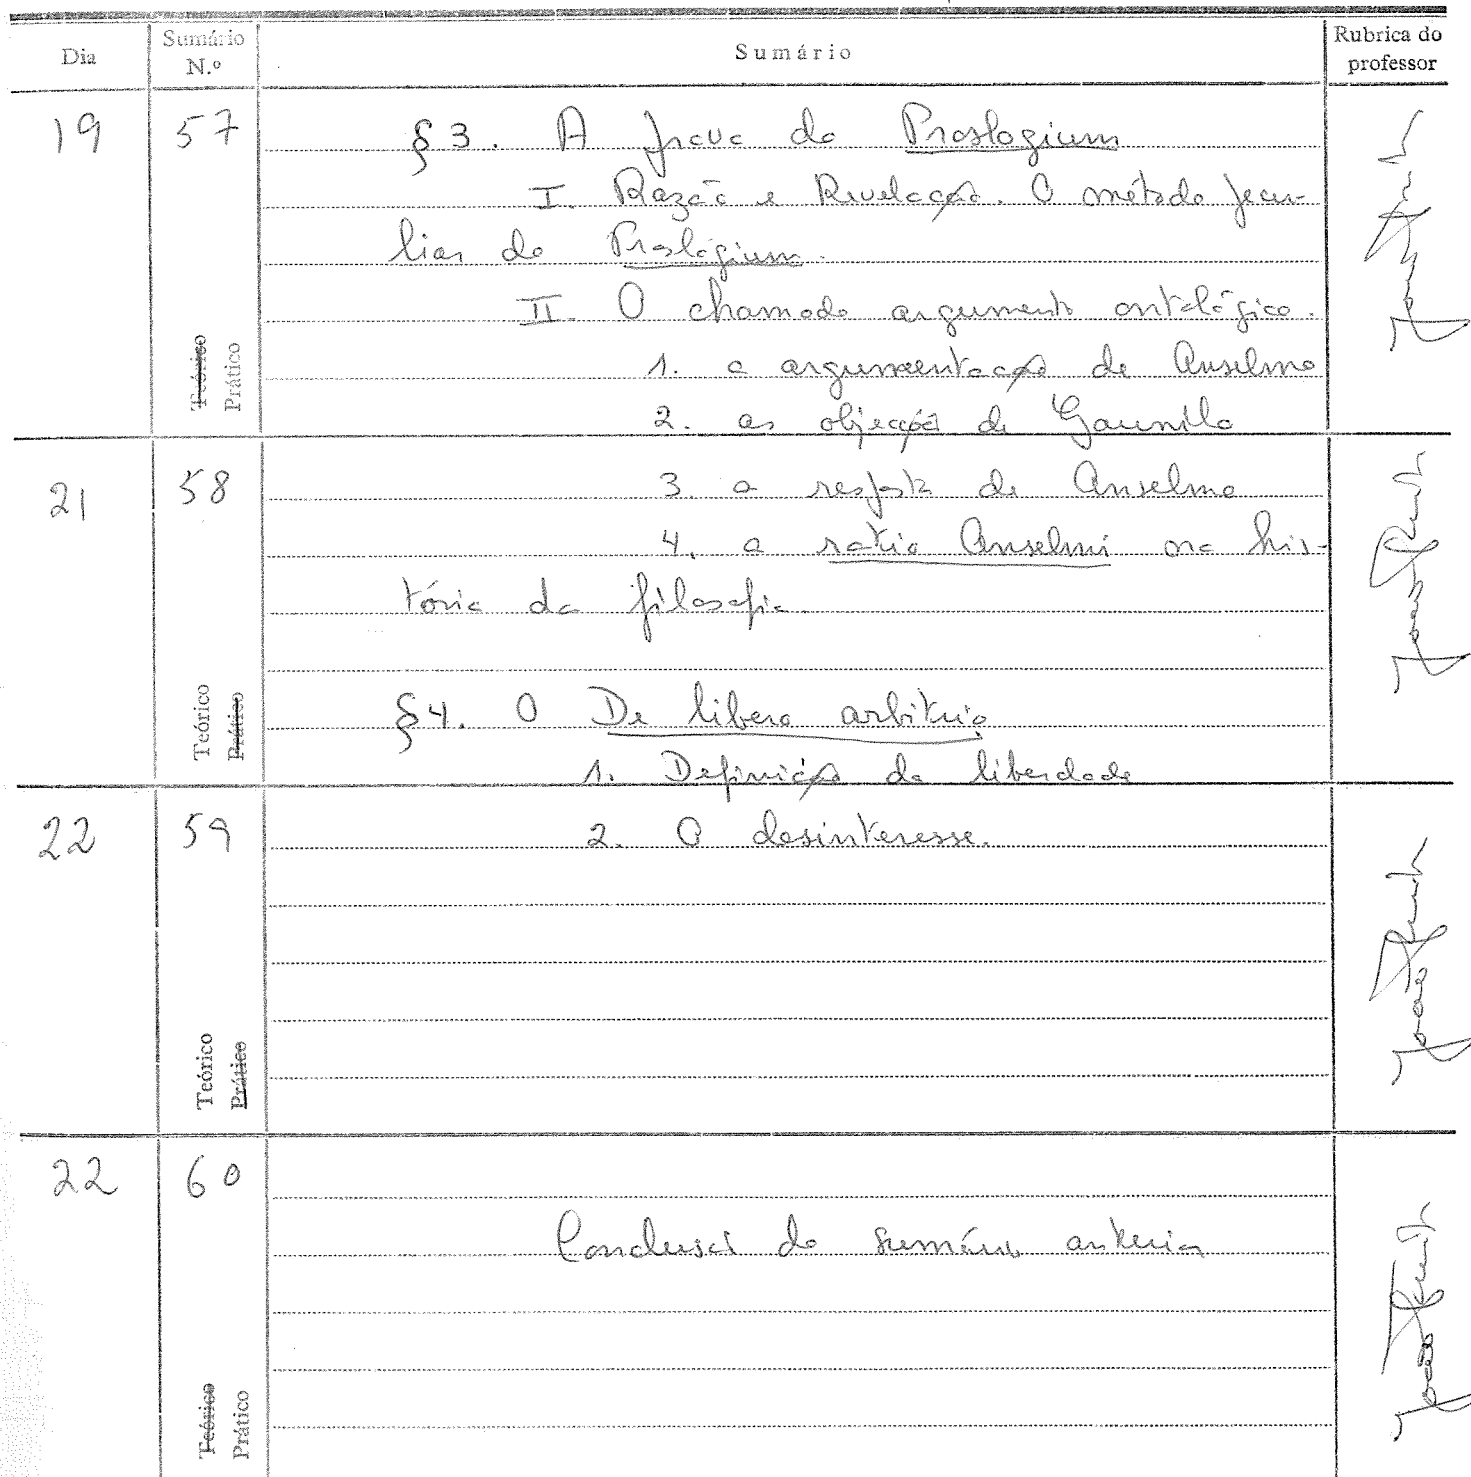 Dia Sumário N.º Sumário Rubrica do professor
19 57 § 3. A prova do Proslogium
I. Razão e Revelação. O método pecu-
liar do Proslogium.
II. O chamado argumento ontológico.
1. a argumentação de Anselmo
2. as objecções de Gaunilo
Teórico Prático
21 58 3. a resposta de Anselmo
4. a ratio Anselmi na his-
tória da filosofia.
§ 4. O De libero arbitrio
1. Definição da liberdade
Teórico Prático
22 59 2. O desinteresse.
Teórico Prático
22 60
Conclusão do sumário anterior
Teórico Prático